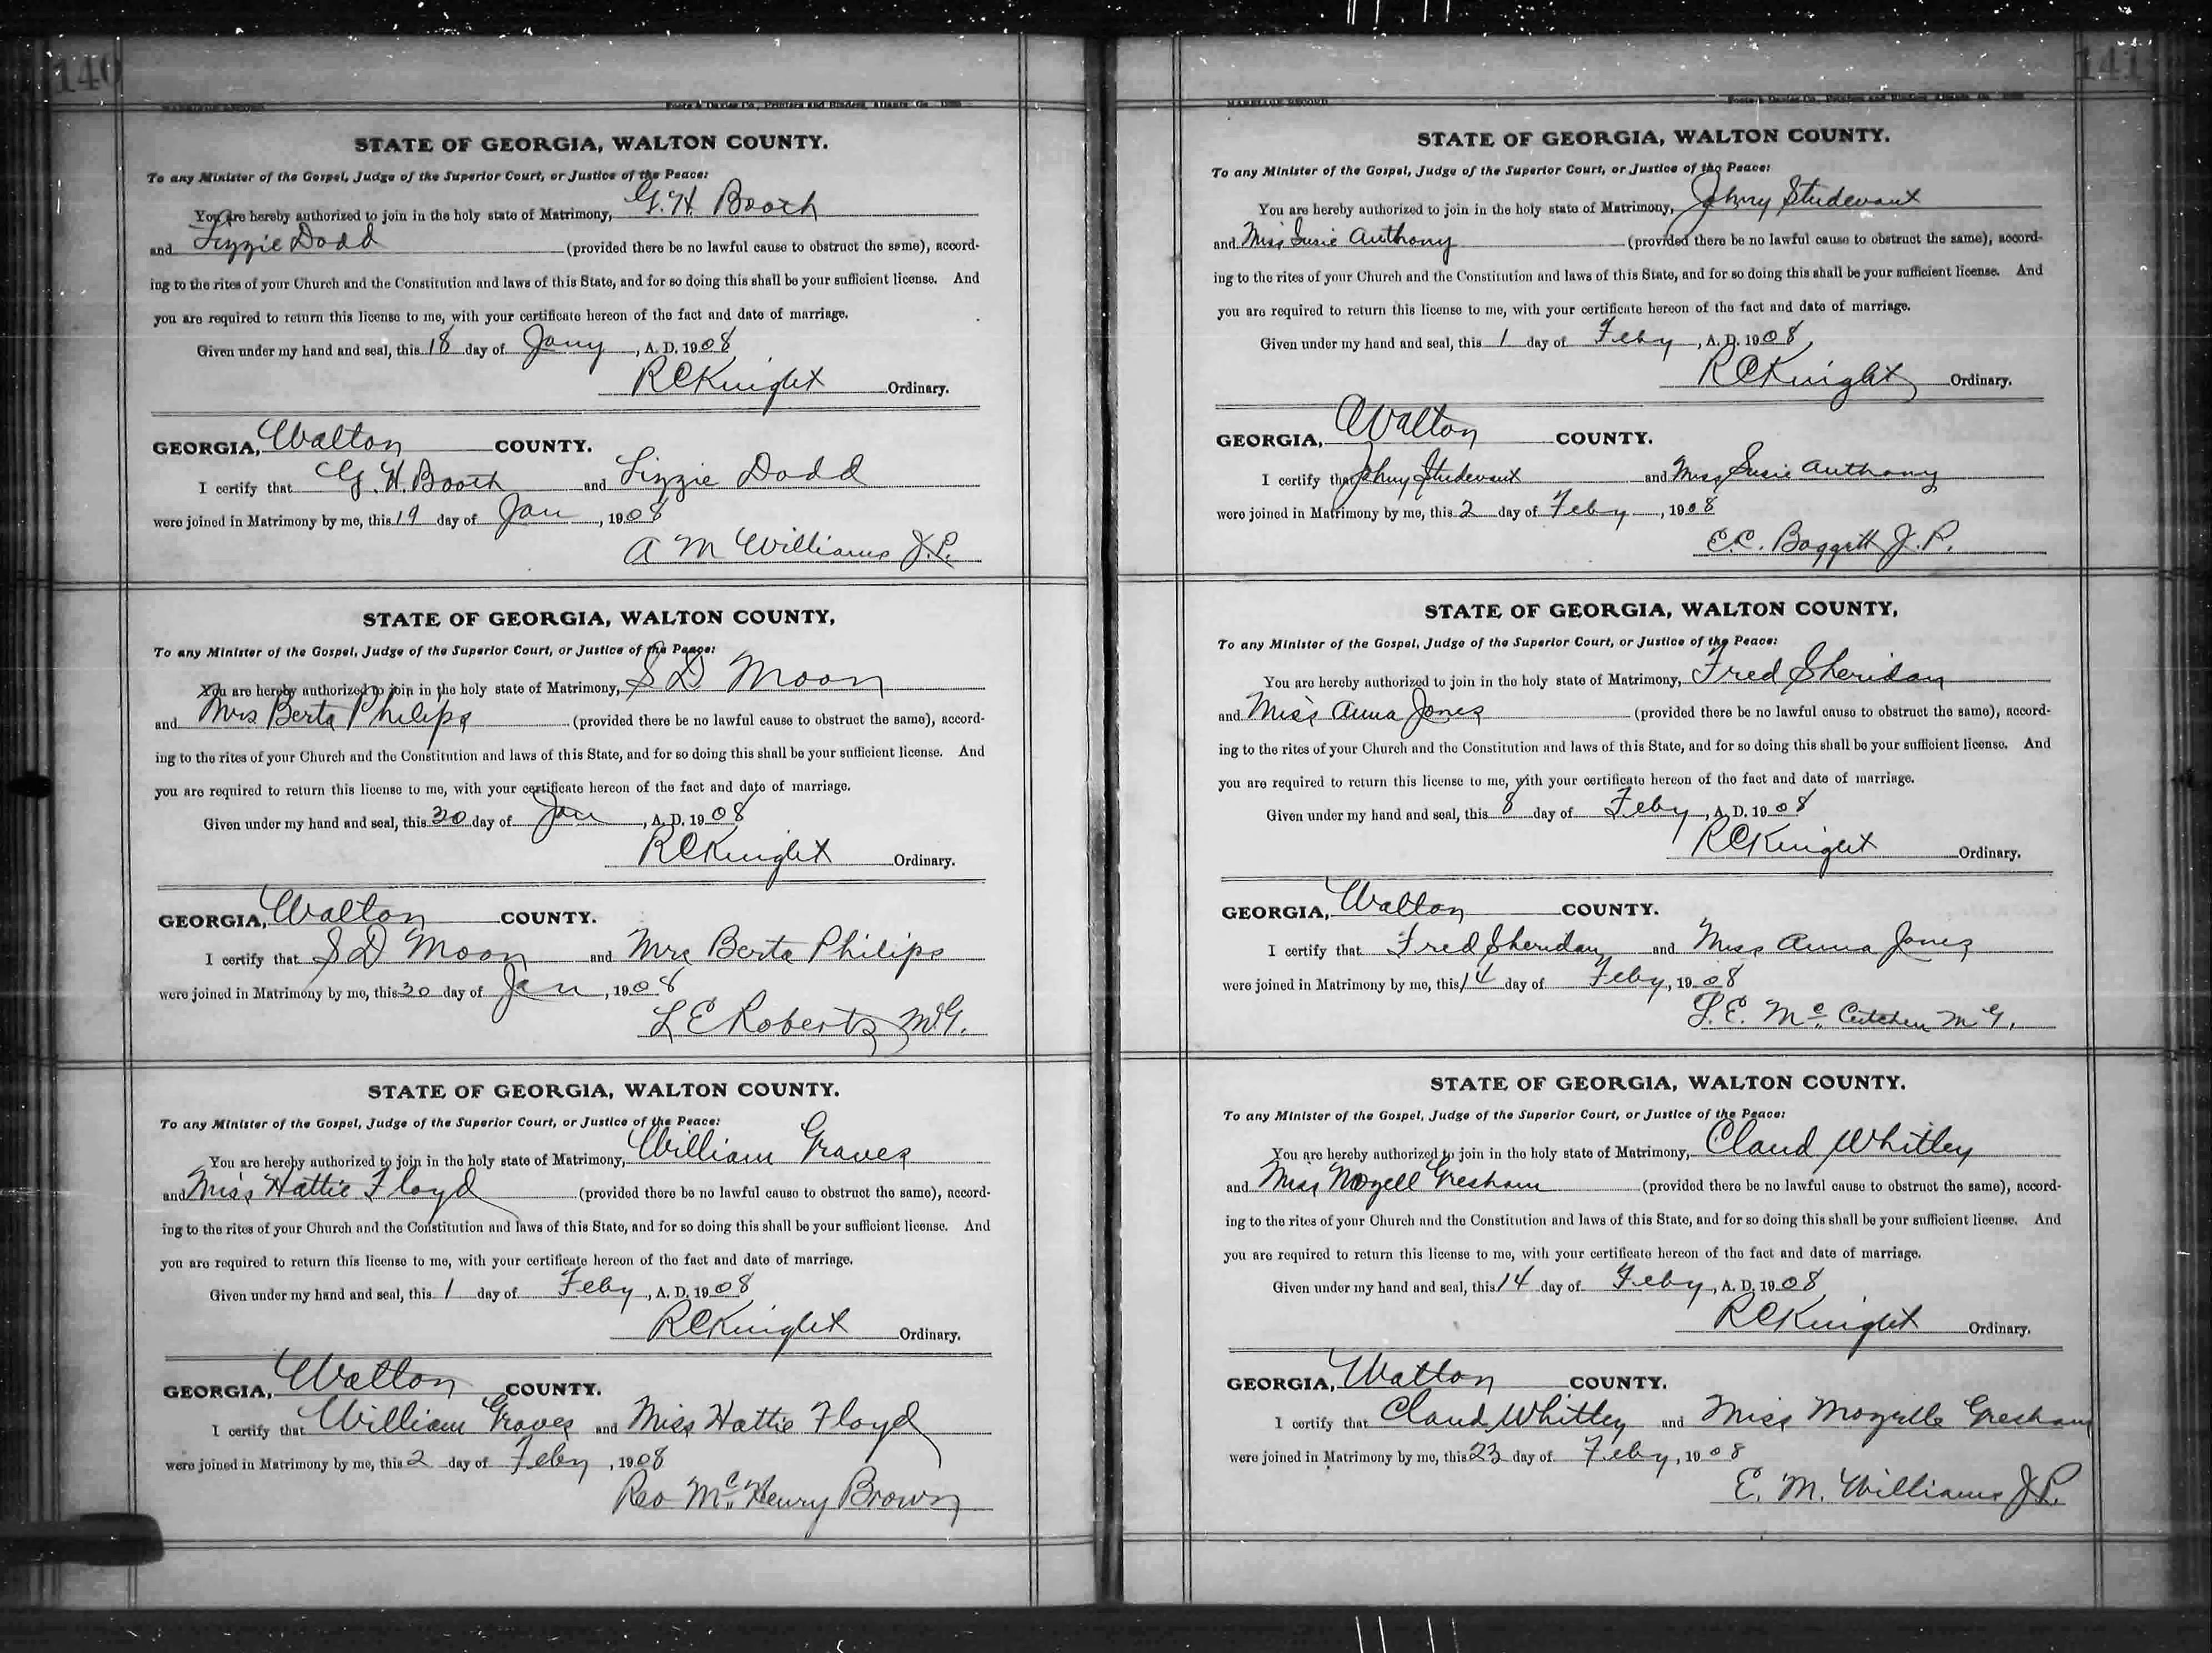 140
MARRIAGE RECORD Foote & Davies Co., Printers and Binders, Atlanta, Ga.
STATE OF GEORGIA, WALTON COUNTY.
To any Minister of the Gospel, Judge of the Superior Court, or Justice of the Peace:
You are hereby authorized to join in the holy state of Matrimony, G. H. Booth
and Lizzie Dodd (provided there be no lawful cause to obstruct the same), accord-
ing to the rites of your Church and the Constitution and laws of this State, and for so doing this shall be your sufficient license. And
you are required to return this license to me, with your certificate hereon of the fact and date of marriage.
Given under my hand and seal, this 18 day of Jany, A. D. 1908
R C Knight Ordinary.
GEORGIA, Walton COUNTY.
I certify that G. H. Booth and Lizzie Dodd
were joined in Matrimony by me, this 19 day of Jan, 1908
A M Williams J.P.
STATE OF GEORGIA, WALTON COUNTY,
To any Minister of the Gospel, Judge of the Superior Court, or Justice of the Peace:
You are hereby authorized to join in the holy state of Matrimony, S D Moon
and Mrs Berta Philips (provided there be no lawful cause to obstruct the same), accord-
ing to the rites of your Church and the Constitution and laws of this State, and for so doing this shall be your sufficient license. And
you are required to return this license to me, with your certificate hereon of the fact and date of marriage.
Given under my hand and seal, this 30 day of Jan, A. D. 1908
R C Knight Ordinary.
GEORGIA, Walton COUNTY.
I certify that S D Moon and Mrs Berta Philips
were joined in Matrimony by me, this 30 day of Jan, 1908
L E Roberts M.G.
STATE OF GEORGIA, WALTON COUNTY.
To any Minister of the Gospel, Judge of the Superior Court, or Justice of the Peace:
You are hereby authorized to join in the holy state of Matrimony, William Graves
and Miss Hattie Floyd (provided there be no lawful cause to obstruct the same), accord-
ing to the rites of your Church and the Constitution and laws of this State, and for so doing this shall be your sufficient license. And
you are required to return this license to me, with your certificate hereon of the fact and date of marriage.
Given under my hand and seal, this 1 day of Feby, A. D. 1908
R C Knight Ordinary.
GEORGIA, Walton COUNTY.
I certify that William Graves and Miss Hattie Floyd
were joined in Matrimony by me, this 2 day of Feby, 1908
Rev Mc. Henry Brown
141
MARRIAGE RECORD Foote & Davies Co., Printers and Binders, Atlanta, Ga.
STATE OF GEORGIA, WALTON COUNTY.
To any Minister of the Gospel, Judge of the Superior Court, or Justice of the Peace:
You are hereby authorized to join in the holy state of Matrimony, Johny Studevant
and Miss Susie Anthony (provided there be no lawful cause to obstruct the same), accord-
ing to the rites of your Church and the Constitution and laws of this State, and for so doing this shall be your sufficient license. And
you are required to return this license to me, with your certificate hereon of the fact and date of marriage.
Given under my hand and seal, this 1 day of Feby, A. D. 1908,
R C Knight Ordinary.
GEORGIA, Walton COUNTY.
I certify that Johny Studevant and Miss Susie Anthony
were joined in Matrimony by me, this 2 day of Feby, 1908
E. C. Baggett J. P.
STATE OF GEORGIA, WALTON COUNTY,
To any Minister of the Gospel, Judge of the Superior Court, or Justice of the Peace:
You are hereby authorized to join in the holy state of Matrimony, Fred Sheridan
and Miss Anna Jones (provided there be no lawful cause to obstruct the same), accord-
ing to the rites of your Church and the Constitution and laws of this State, and for so doing this shall be your sufficient license. And
you are required to return this license to me, with your certificate hereon of the fact and date of marriage.
Given under my hand and seal, this 8 day of Feby, A. D. 1908
R C Knight Ordinary.
GEORGIA, Walton COUNTY.
I certify that Fred Sheridan and Miss Anna Jones
were joined in Matrimony by me, this 14 day of Feby, 1908
L. E. Mc. Cutchen M G.
STATE OF GEORGIA, WALTON COUNTY.
To any Minister of the Gospel, Judge of the Superior Court, or Justice of the Peace:
You are hereby authorized to join in the holy state of Matrimony, Claud Whitley
and Miss Mozell Gresham (provided there be no lawful cause to obstruct the same), accord-
ing to the rites of your Church and the Constitution and laws of this State, and for so doing this shall be your sufficient license. And
you are required to return this license to me, with your certificate hereon of the fact and date of marriage.
Given under my hand and seal, this 14 day of Feby, A. D. 1908
R C Knight Ordinary.
GEORGIA, Walton COUNTY.
I certify that Claud Whitley and Miss Mozelle Gresham
were joined in Matrimony by me, this 23 day of Feby, 1908
E. M. Williams J.P.